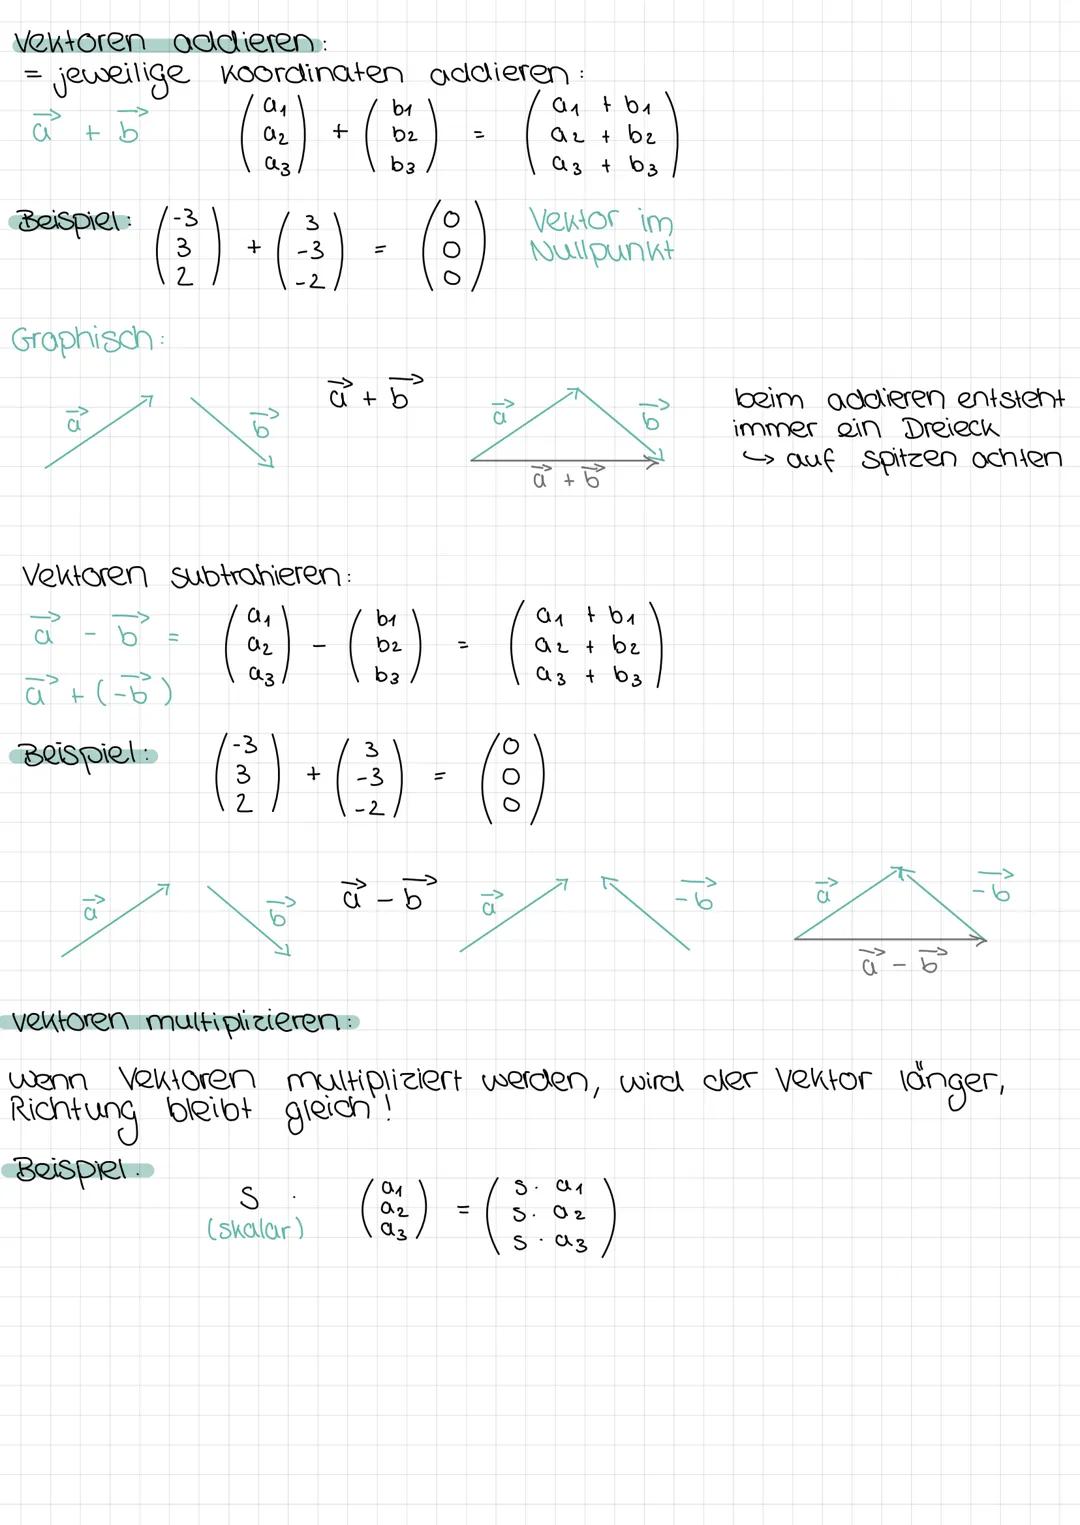 Vektoren addieren:
= jeweilige Koordinaten addieren:
a⃗ + b⃗ (a1 a2 a3) + (b1 b2 b3) = (a1 + b1 a2 + b2 a3 + b3)
Beispiel: (-3 3 2) + (3 -3 -2) = (0 0 0) Vektor im Nullpunkt
Graphisch:
a⃗ b⃗ a⃗ + b⃗ a⃗ b⃗ a⃗ + b⃗
beim addieren entsteht
immer ein Dreieck
↳ auf spitzen achten
Vektoren subtrahieren:
a⃗ - b⃗ = (a1 a2 a3) - (b1 b2 b3) = (a1 + b1 a2 + b2 a3 + b3)
a⃗ + (-b⃗)
Beispiel: (-3 3 2) + (3 -3 -2) = (0 0 0)
a⃗ b⃗ a⃗ - b⃗ a⃗ -b⃗ a⃗ -b⃗ a⃗ - b⃗
Vektoren multiplizieren:
wenn Vektoren multipliziert werden, wird der Vektor länger,
Richtung bleibt gleich!
Beispiel.
S · (a1 a2 a3) = (s · a1 s · a2 s · a3)
(skalar)